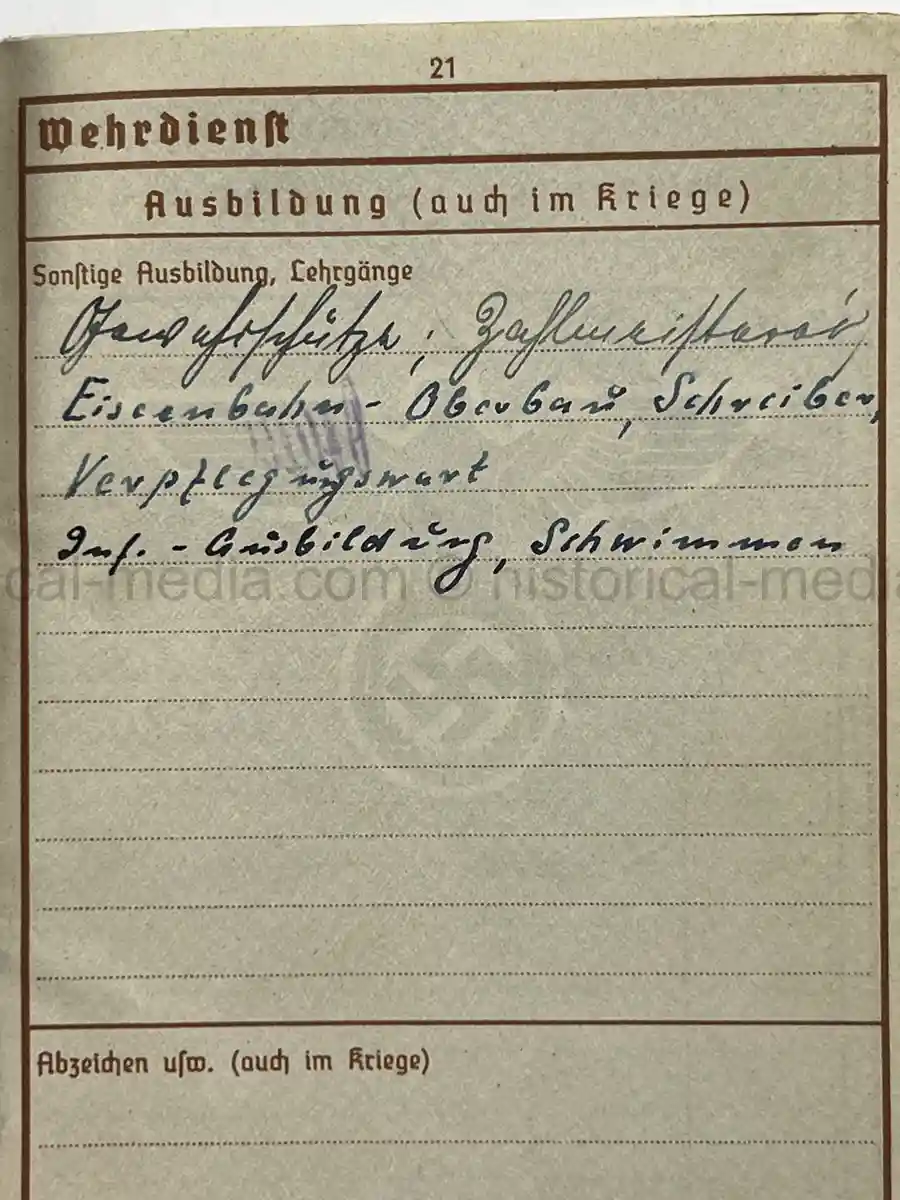 21
Wehrdienst
Ausbildung (auch im Kriege)
Sonstige Ausbildung, Lehrgänge
Gewehrschütze; Zahlmeisterei,
Eisenbahn-Oberbau, Schreiber,
Verpflegungswart
Inf.-Ausbildung, Schwimmen
cal-media.com © historical-media
Abzeichen usw. (auch im Kriege)